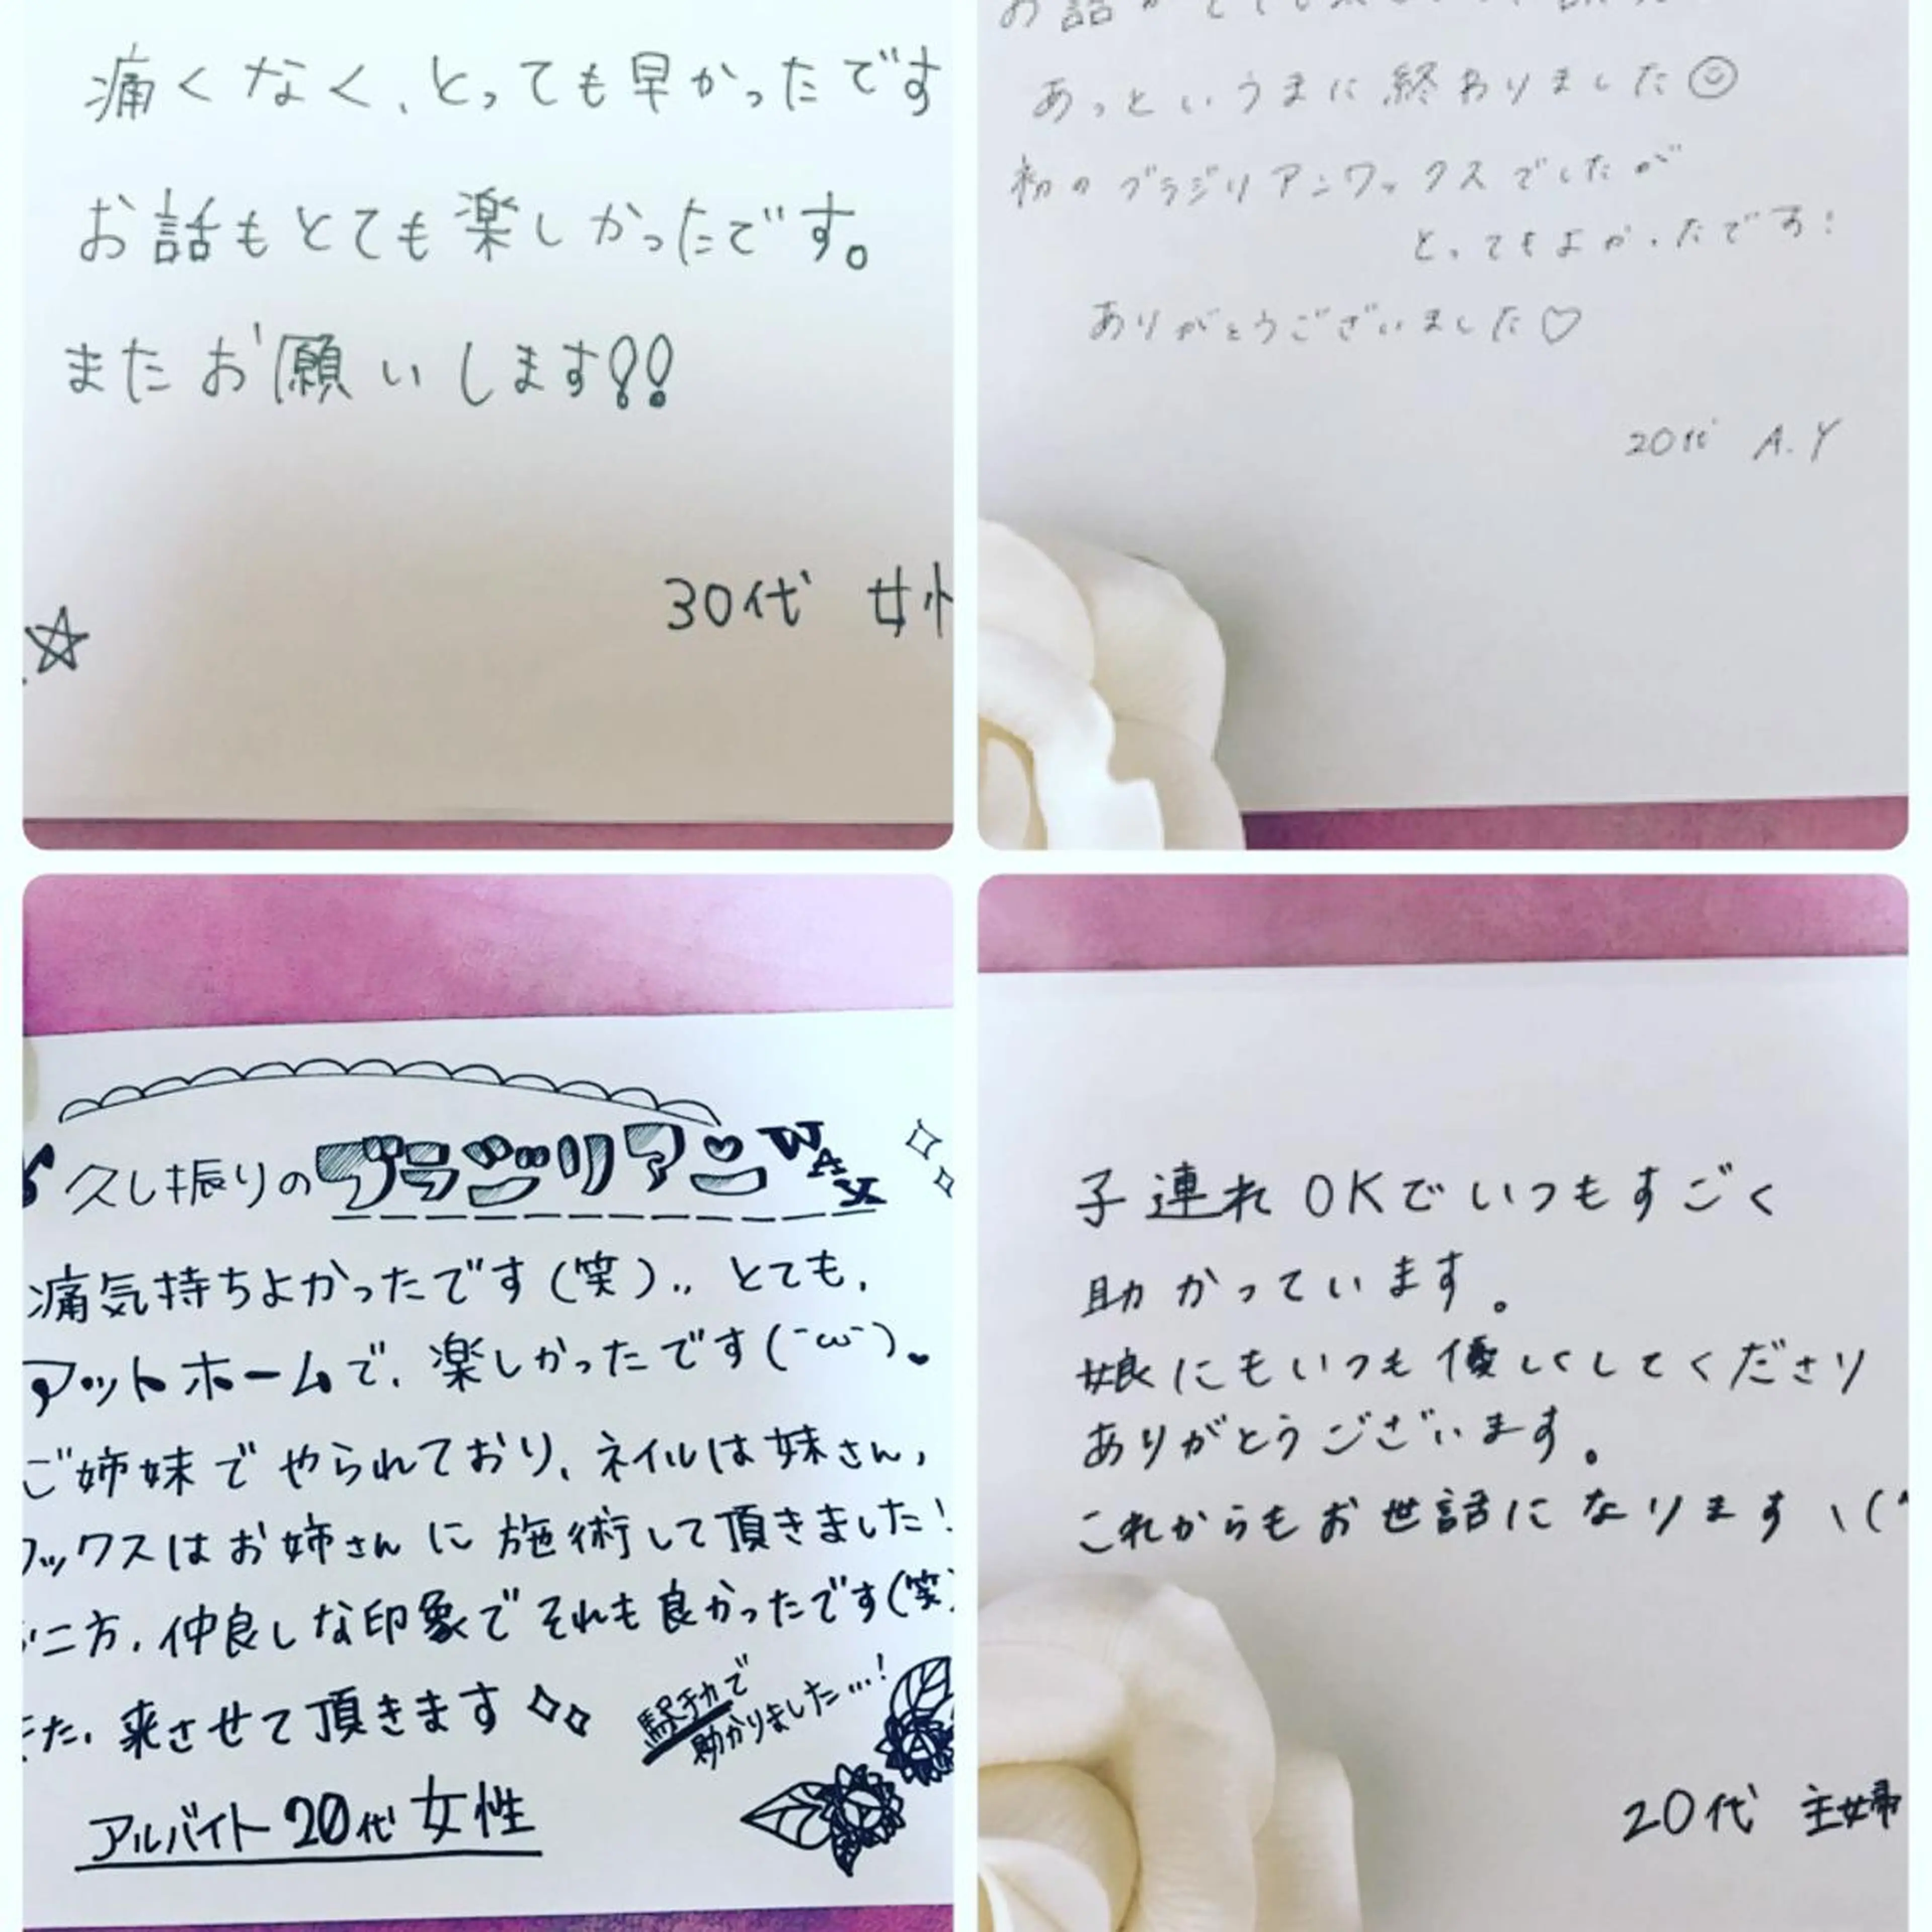 痛くなく、とっても早かったです
お話もとても楽しかったです。
またお願いします!!
30代 女
☆
あっというまに終わりました☺
初のブラジリアンワックスでしたが
とってもよかったです!
ありがとうございました♡
20代 A.Y
久し振りのブラジリアン♥WAX
痛気持ちよかったです(笑).. とても、
アットホームで、楽しかったです(¯ω¯)♥
ご姉妹でやられており、ネイルは妹さん,
ワックスはお姉さんに施術して頂きました!
二方、仲良しな印象でそれも良かったです(笑)
た、来させて頂きます✧✧
駅チカで
助かりました…!
アルバイト 20代 女性
子連れOKでいつもすごく
助かっています。
娘にもいつも優しくしてくださり
ありがとうございます。
これからもお世話になります\(^
20代 主婦